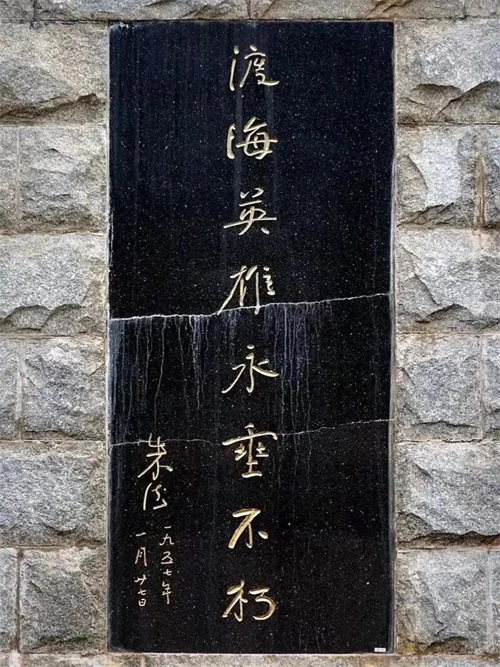 渡海英雄永垂不朽
朱德 一九五七年
一月廿七日